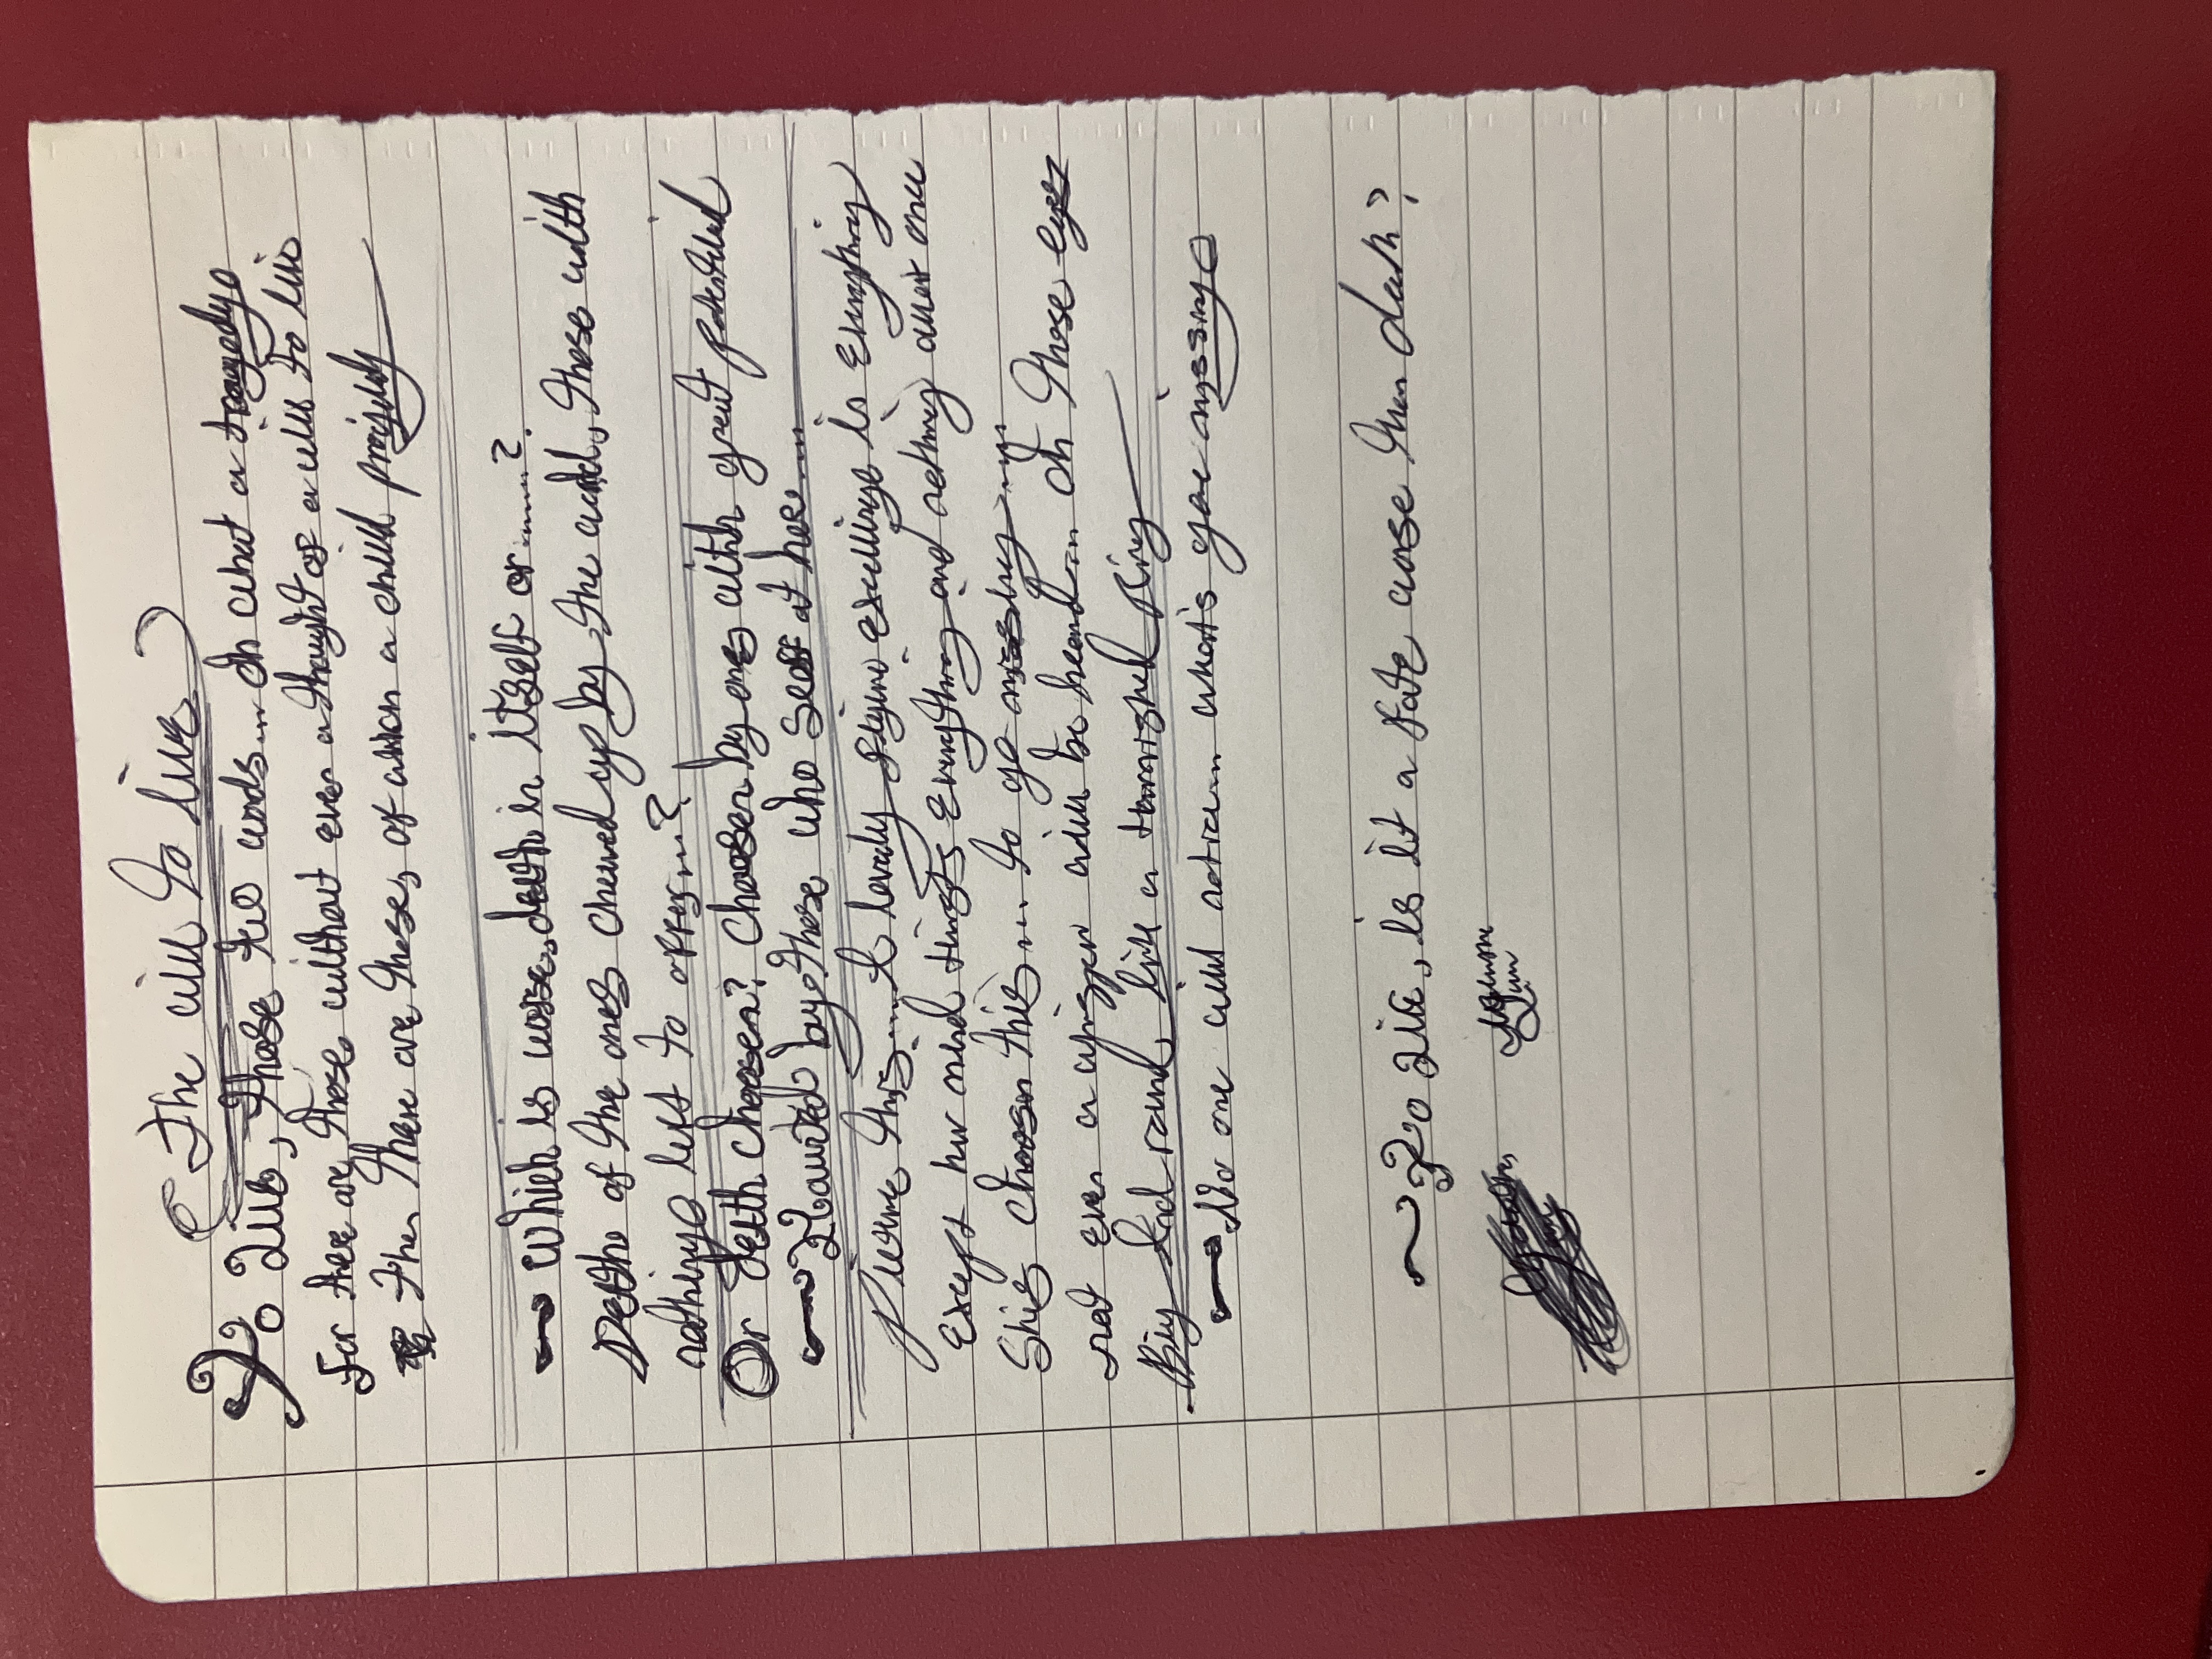 The will to live
To live, those two words.... oh what a tragedy
For there are those without even a thought of a will to live
Then there are those, of which a child
Which is worse, death in itself or......?
Death of the ones chewed up by the world, those with
nothing left to offer...?
Or death chosen? Chosen by ones with great potential
Haunted by those who scoff at her....
this.... lovely existince is everything
Except her mind, things everything and nothing all at once
She's chosen this.... to go
not even a whisper will be heard... oh those eyes
Big and round, like a
No one will notice.... what's gone missing
To live, is it a fate worse then death?